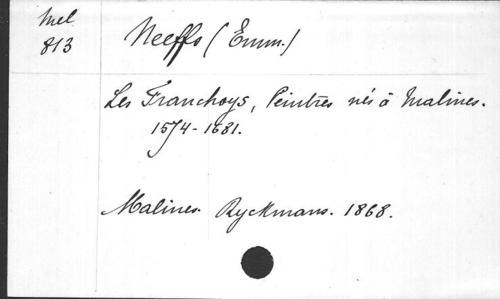 Mel
813
Neeffs (Emm.)
Les Franchoys, Peintres nés à Malines.
1574-1681.
Malines. Ryckmans. 1868.